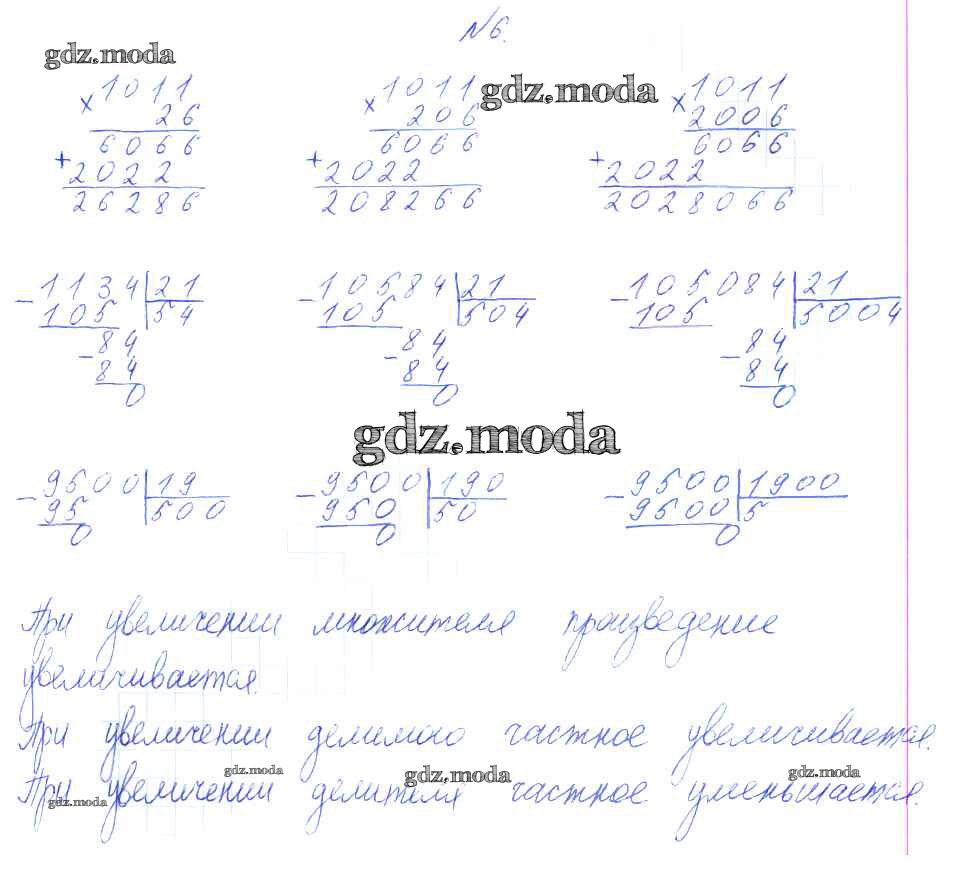 №6.
gdz.moda
1011 1011 gdz.moda 1011
× 26 × 206 × 2006
6066 6066 6066
+ 2022 + 2022 + 2022
26286 208266 2028066
- 1134 | 21 - 10584 | 21 - 105084 | 21
105 | 54 105 | 504 105 | 5004
- 84 - 84 - 84
84 84 84
0 0 0
gdz.moda
- 9500 | 19 - 9500 | 190 - 9500 | 1900
95 | 500 950 | 50 9500 | 5
0 0 0
При увеличении множителя произведение
увеличивается.
При увеличении делимого частное увеличивается.
gdz.moda gdz.moda gdz.moda
При увеличении делителя частное уменьшается.
gdz.moda